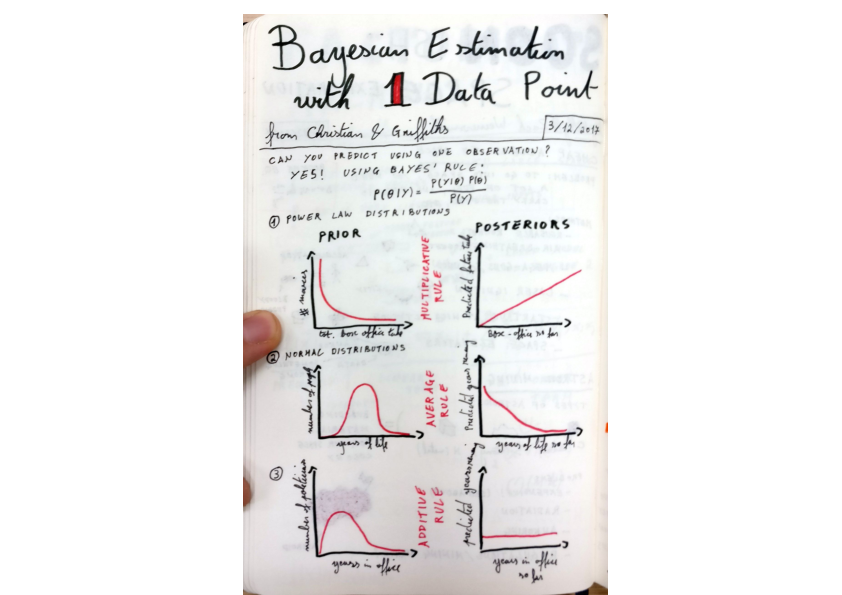 Bayesian Estimation
with 1 Data Point
from Christian & Griffiths
3/12/2017
CAN YOU PREDICT USING ONE OBSERVATION?
YES! USING BAYES' RULE:
P(θ|Y) = P(Y|θ) P(θ) / P(Y)
① POWER LAW DISTRIBUTIONS
PRIOR
POSTERIORS
# movies
tot. box office take
MULTIPLICATIVE
RULE
Predicted future take
Box-office so far
② NORMAL DISTRIBUTIONS
number of people
years of life
AVERAGE
RULE
Predicted years remaing
years of life so far
③
number of politicians
years in office
ADDITIVE
RULE
predicted years remaing
years in office
so far